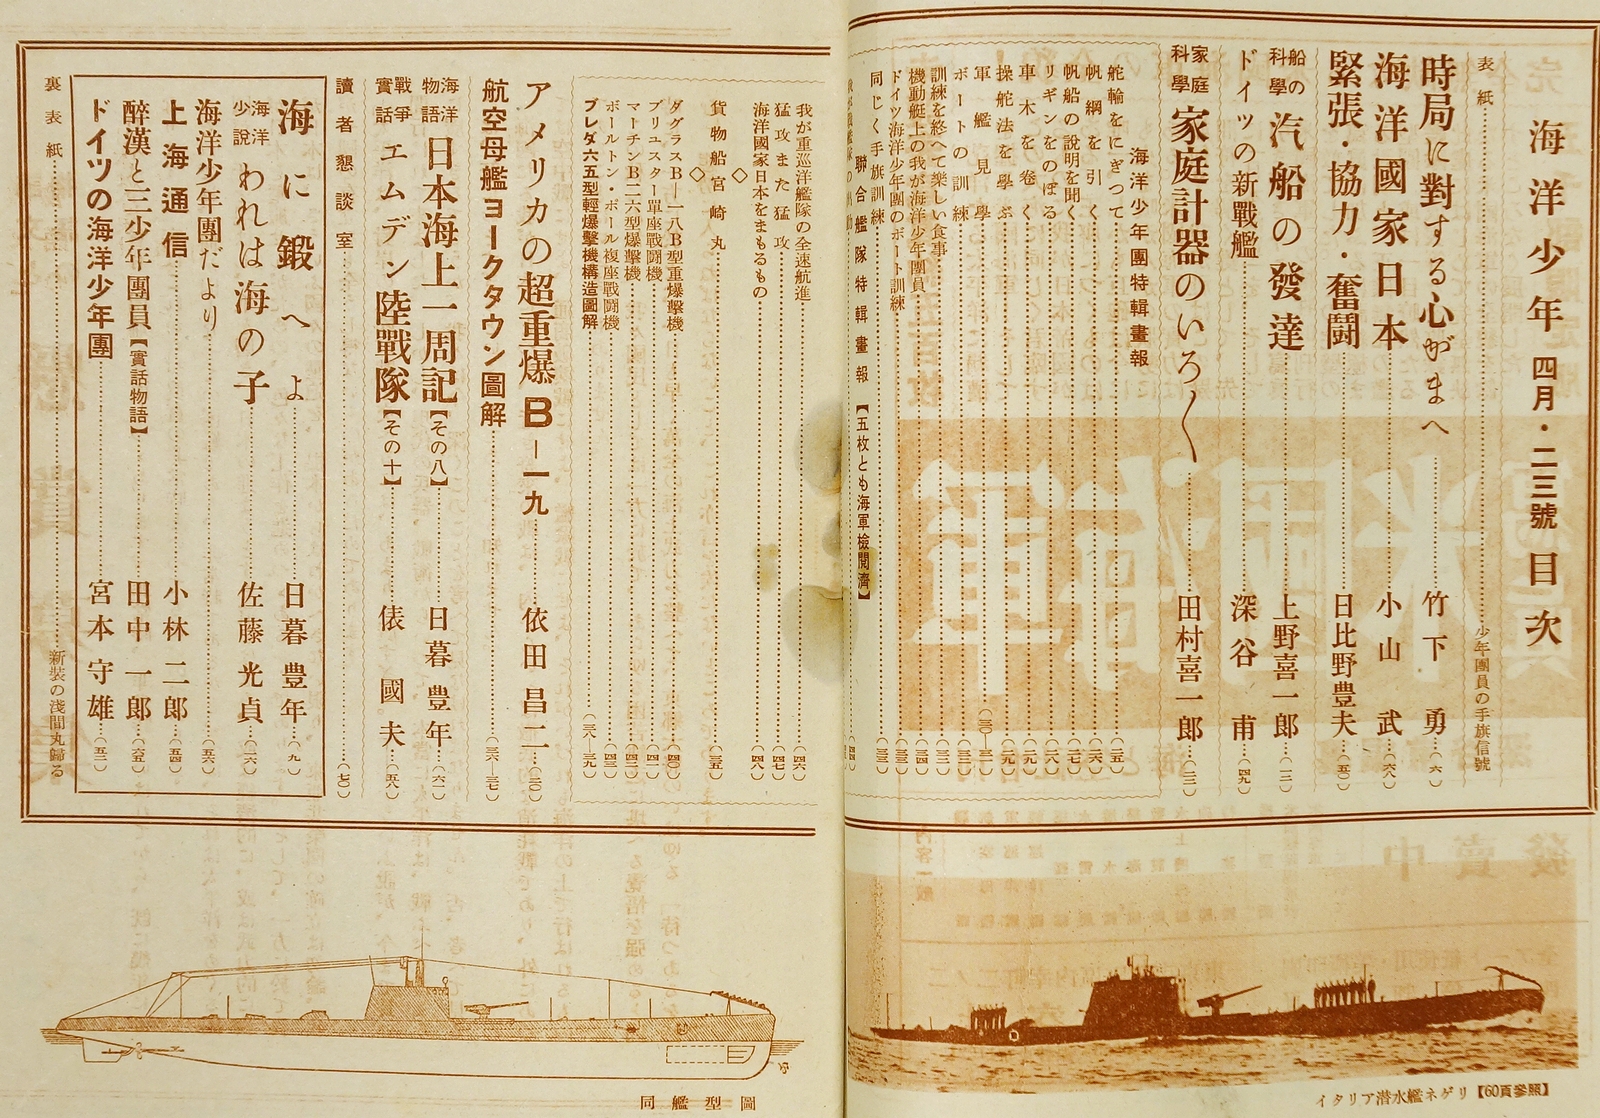 海洋少年 四月・二三號 目次
表紙……少年團員の手旗信號
時局に對する心がまへ……竹下勇……(六)
海洋國家日本……小山武……(六八)
緊張・協力・奮闘……日比野豊夫……(五〇)
船の科學 汽船の發達……上野喜一郎……(一二)
ドイツの新戰艦……深谷甫……(四九)
家庭科學 家庭計器のいろ〱……田村喜一郎……(二三)
海洋少年團特輯畫報
舵輪をにぎつて……(一五)
帆綱を引く……(一六)
帆船の説明を聞く……(一七)
リギンをのぼる……(一八)
車木を卷く……(一九)
操舵法を學ぶ……(一九)
軍艦見學……(二〇—二一)
ボートの訓練……(二二)
訓練を終へて樂しい食事……(二二)
機動艇上の我が海洋少年團員……(二三)
ドイツ海洋少年團のボート訓練……(三三)
同じく手旗訓練……(三三)
聯合艦隊特輯畫報【五枚とも海軍檢閲濟】
我が重巡洋艦隊の全速航進……(四六)
猛攻また猛攻……(四七)
海洋國家日本をまもるもの……(四八)
◇
貨物船宮崎丸……(三五)
◇
ダグラスB—一八B型重爆擊機……(四〇)
ブリユスター單座戰闘機……(四一)
マーチンB二六型爆擊機……(四二)
ボールトン・ポール複座戰闘機……(四三)
ブレダ六五型輕爆擊機構造圖解……(三八—三九)
アメリカの超重爆B—一九……依田昌二……(三〇)
航空母艦ヨークタウン圖解……(三六—三七)
海洋物語 日本海上一周記【その八】……日暮豊年……(六二)
戰爭實話 エムデン陸戰隊【その十】……俵國夫……(五八)
讀者懇談室……(七〇)
海に鍛へよ……日暮豊年……(九)
海洋少説 われは海の子……佐藤光貞……(二六)
海洋少年團だより……(五六)
上海通信……小林二郎……(五四)
醉漢と三少年團員【實話物語】……田中一郎……(六五)
ドイツの海洋少年團……宮本守雄……(五二)
裏表紙……新裝の淺間丸歸る
イタリア潜水艦ネゲリ【60頁參照】
同艦型圖